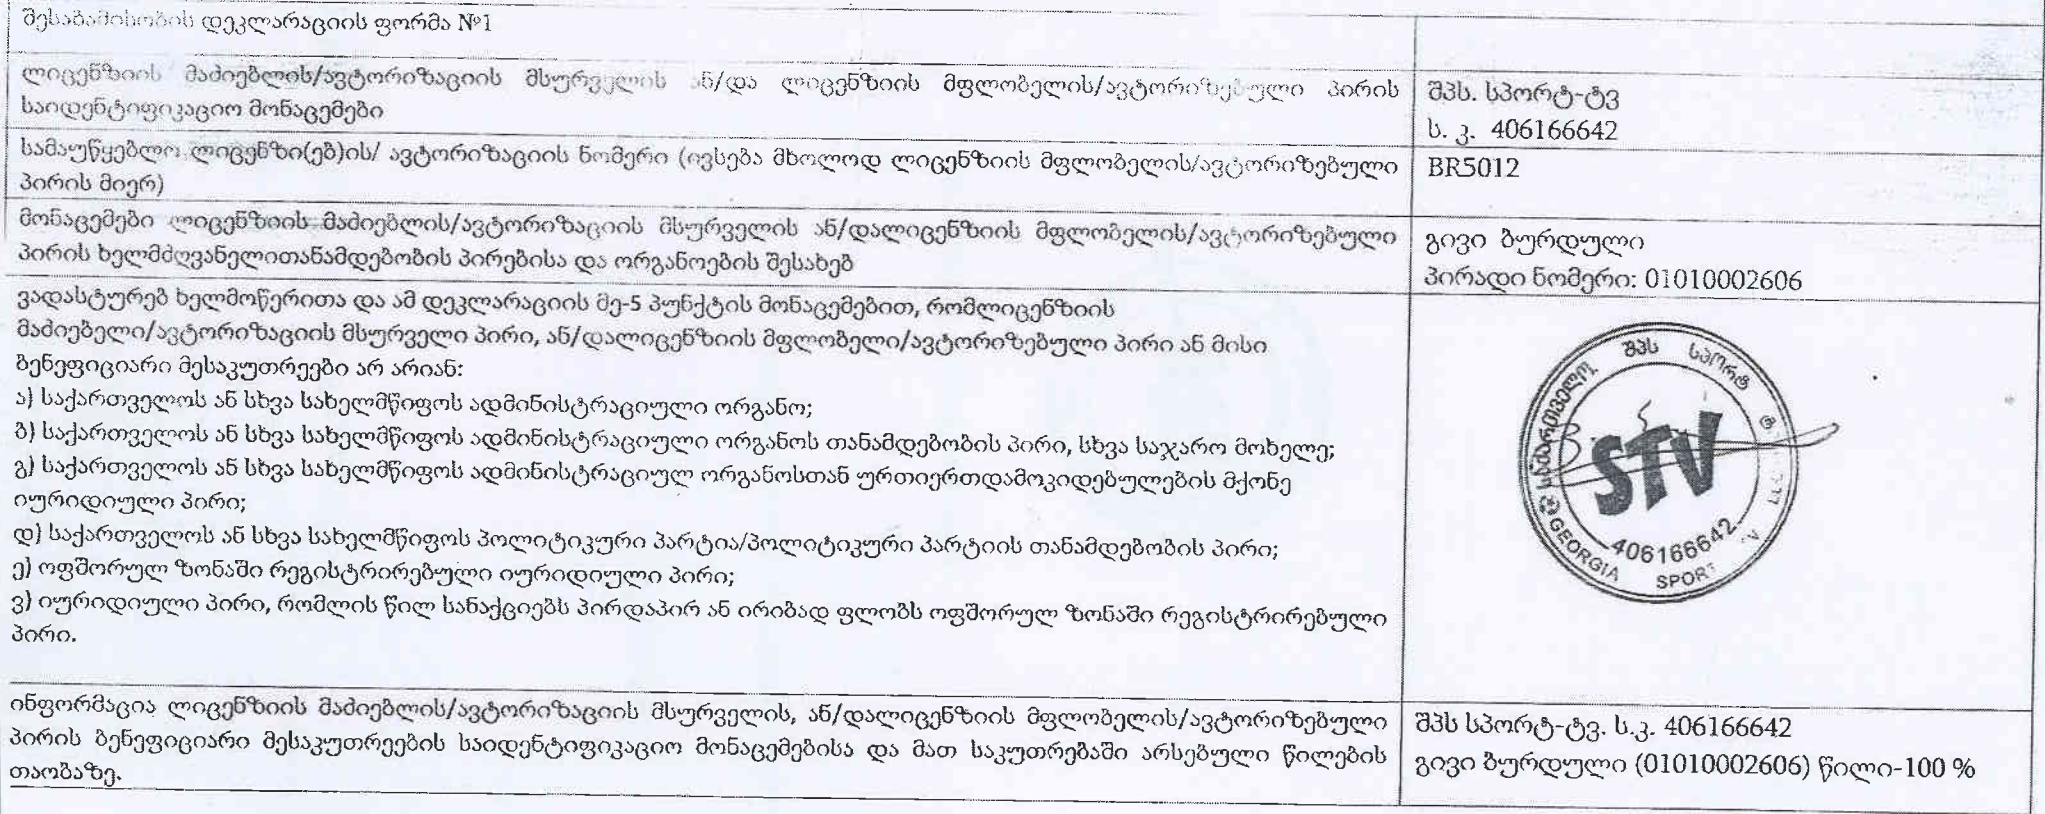 შესაბამისობის დეკლარაციის ფორმა №1
ლიცენზიის მაძიებლის/ავტორიზაციის მსურველის ან/და ლიცენზიის მფლობელის/ავტორიზებული პირის
საიდენტიფიკაციო მონაცემები
შპს. სპორტ-ტვ
ს. კ. 406166642
სამაუწყებლო ლიცენზი(ებ)ის/ ავტორიზაციის ნომერი (ივსება მხოლოდ ლიცენზიის მფლობელის/ავტორიზებული
პირის მიერ)
BR5012
მონაცემები ლიცენზიის მაძიებლის/ავტორიზაციის მსურველის ან/დალიცენზიის მფლობელის/ავტორიზებული
პირის ხელმძღვანელითანამდებობის პირებისა და ორგანოების შესახებ
გივი ბურდული
პირადი ნომერი: 01010002606
ვადასტურებ ხელმოწერითა და ამ დეკლარაციის მე-5 პუნქტის მონაცემებით, რომლიცენზიის
მაძიებელი/ავტორიზაციის მსურველი პირი, ან/დალიცენზიის მფლობელი/ავტორიზებული პირი ან მისი
ბენეფიციარი მესაკუთრეები არ არიან:
ა) საქართველოს ან სხვა სახელმწიფოს ადმინისტრაციული ორგანო;
ბ) საქართველოს ან სხვა სახელმწიფოს ადმინისტრაციული ორგანოს თანამდებობის პირი, სხვა საჯარო მოხელე;
გ) საქართველოს ან სხვა სახელმწიფოს ადმინისტრაციულ ორგანოსთან ურთიერთდამოკიდებულების მქონე
იურიდიული პირი;
დ) საქართველოს ან სხვა სახელმწიფოს პოლიტიკური პარტია/პოლიტიკური პარტიის თანამდებობის პირი;
ე) ოფშორულ ზონაში რეგისტრირებული იურიდიული პირი;
ვ) იურიდიული პირი, რომლის წილ სანაქციებს პირდაპირ ან ირიბად ფლობს ოფშორულ ზონაში რეგისტრირებული
პირი.
საქართველო შპს სპორტ ტ
STV
406166642
GEORGIA SPORT
ინფორმაცია ლიცენზიის მაძიებლის/ავტორიზაციის მსურველის, ან/დალიცენზიის მფლობელის/ავტორიზებული
პირის ბენეფიციარი მესაკუთრეების საიდენტიფიკაციო მონაცემებისა და მათ საკუთრებაში არსებული წილების
თაობაზე.
შპს სპორტ-ტვ. ს.კ. 406166642
გივი ბურდული (01010002606) წილი-100 %